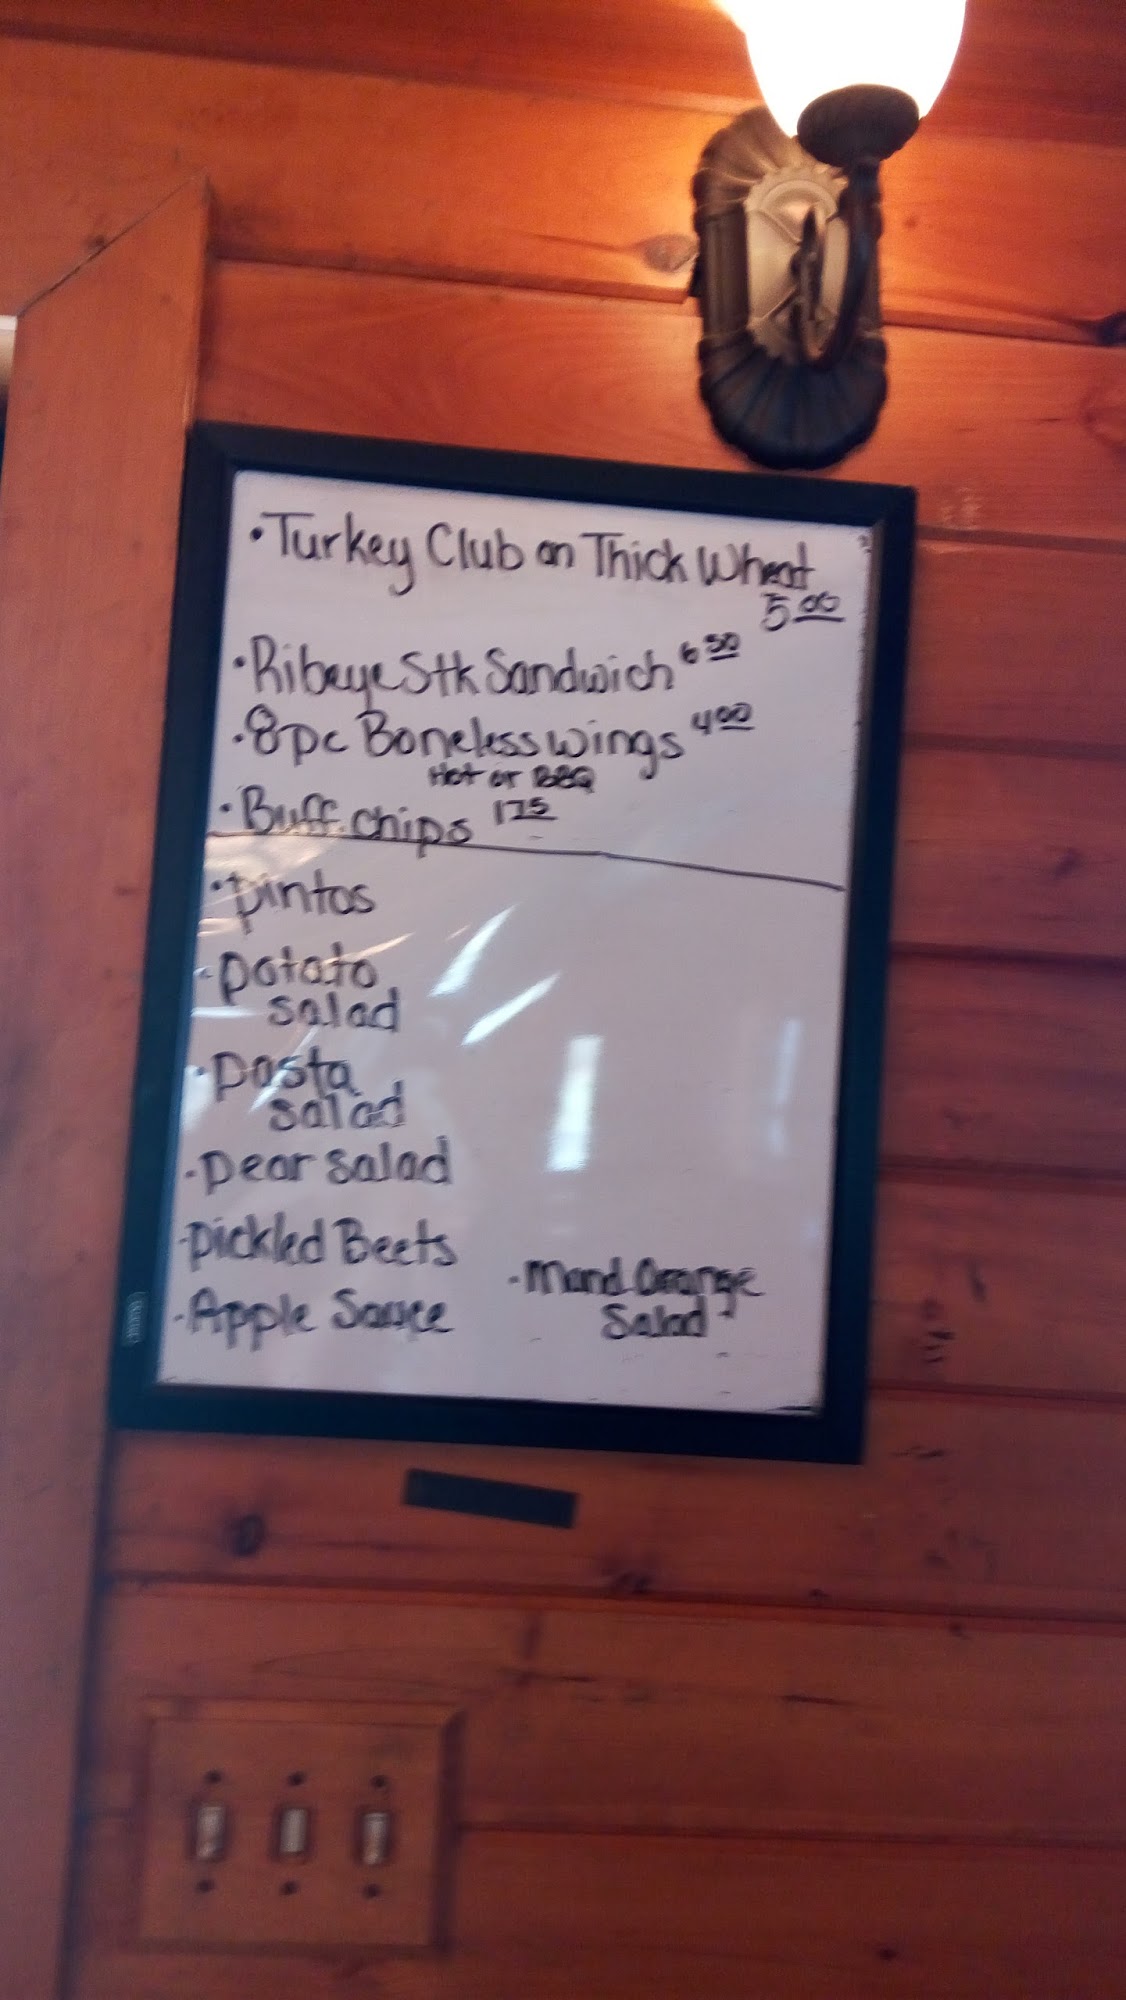 • Turkey Club on Thick Wheat
5.00
• Ribeye Stk Sandwich 6.50
• 8pc Boneless wings 4.00
Hot or BBQ
• Buff. chips 1.75
• pintos
• potato
salad
• pasta
salad
• pear salad
• pickled Beets
• Apple Sauce
• Mand. Orange
Salad